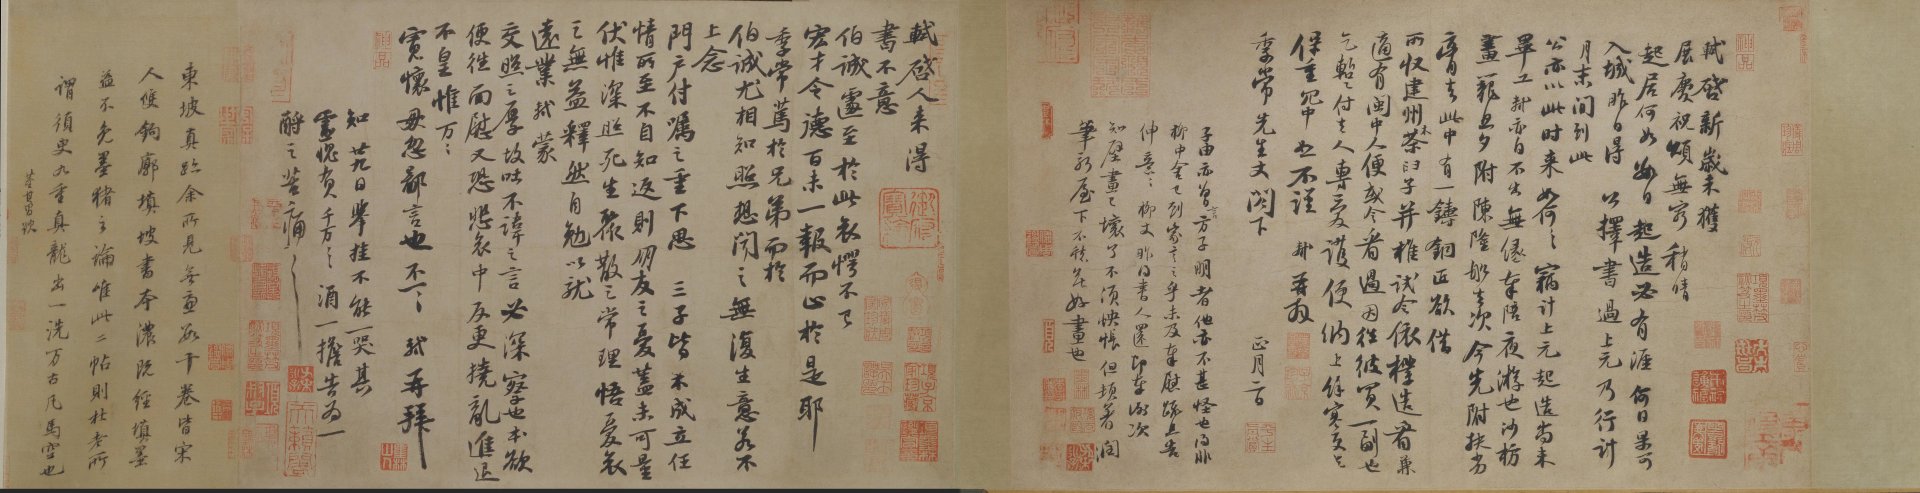 軾啓新歲未獲
展慶祝頌無窮稍晴
起居何如數日起造必有涯何日果可
入城昨日得公擇書過上元乃行計
月末間到此
公亦以此時來如何如何竊計上元起造尚未
畢工軾亦自不出無緣奉陪夜游也沙枋
畫籠旦夕附陳隆船去次今先附扶劣
膏去此中有一鑄銅匠欲借
所收建州木茶臼子并椎試令依樣造看兼
適有閩中人便或令看過因往彼買一副也
乞暫付去人專愛護便納上餘寒更乞
保重冗中恕不謹軾再拜
季常先生丈閣下
正月二日
子由亦曾言方子明者他亦不甚怪也得非
柳中舍已到家言之乎未及奉慰疏且告
伸意伸意柳丈昨得書人還即奉謝次
知壁畫已壞了不須怏悵但頓著潤
筆新屋下不愁無好畫也
軾啓人來得
書不意
伯誠遽至於此哀愕不已
宏才令德百未一報而止於是耶
季常篤於兄弟而於
伯誠尤相知照想聞之無復生意若不
上念
門戶付囑之重下思三子皆未成立任
情所至不自知返則朋友之憂蓋未可量
伏惟深照死生聚散之常理悟憂哀
之無益釋然自勉以就
遠業軾蒙
交照之厚故吐不諱之言必深察也本欲
便往面慰又恐悲哀中反更撓亂進退
不皇惟萬萬
寬懷毋忽鄙言也不一一軾再拜
知廿九日舉挂不能一哭其
靈愧負千萬千萬酒一擔告為一
酹之苦痛苦痛
東坡真跡余所見無慮數十卷皆宋
人雙鉤廓填坡書本濃既經填墨
益不免墨豬之論唯此二帖則杜老所
謂須臾九重真龍出一洗萬古凡馬空也
董其昌跋